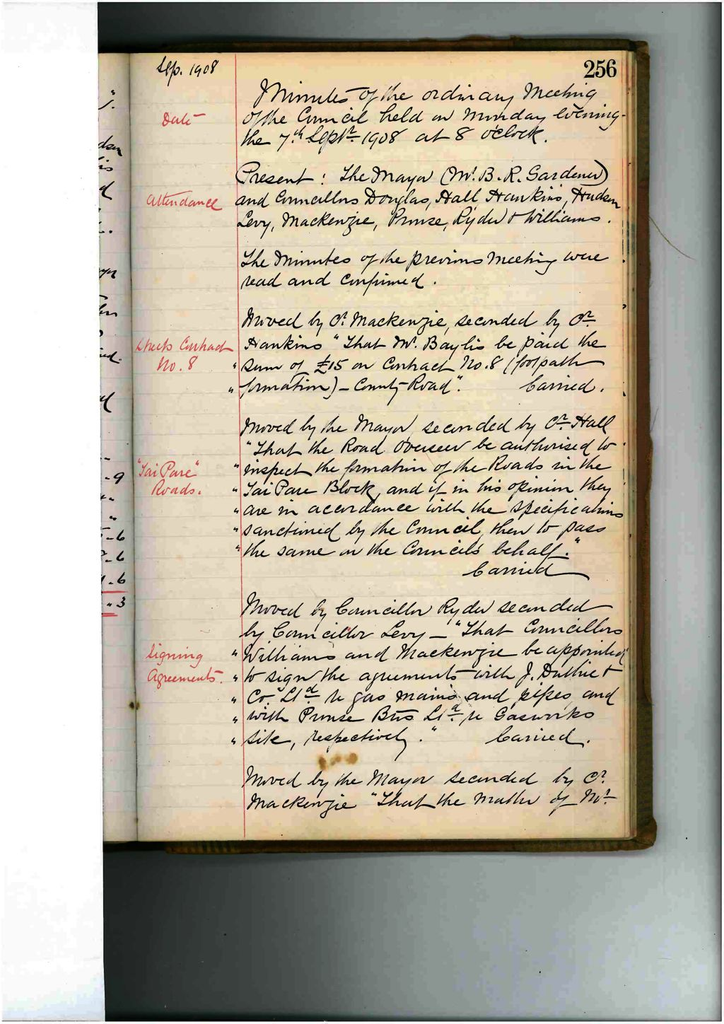 Sep. 1908
256
Date
Minutes of the ordinary Meeting
of the Council held on Monday evening
the 7th Septr 1908 at 8 oclock.
Attendance
Present: The Mayor (Mr. B. R. Gardener)
and Councillors Douglas, Hall Hawkins, Hudson
Levy, Mackenzie, Prouse, Ryder & Williams.
The Minutes of the previous Meeting were
read and confirmed.
Contract
No. 8
Moved by Cr Mackenzie, seconded by Cr
Hawkins "That Mr. Baylis be paid the
" sum of £15 on Contract No. 8 (footpath
" formation) – County Road". Carried.
"Tai Pare"
Roads.
Moved by the Mayor seconded by Cr Hall
"That the Road Overseer be authorised to
" inspect the formation of the Roads in the
" Tai Pare Block, and if in his opinion they
" are in accordance with the specifications
" sanctioned by the Council, then to pass
" the same on the Councils behalf."
Carried
Signing
Agreements.
Moved by Councillor Ryder seconded
by Councillor Levy – "That Councillors
" Williams and Mackenzie be appointed
" to sign the agreements with J. Duthie &
" Co Ltd re gas mains and pipes and
" with Prouse Bros Ltd re Gasworks
" site, respectively." Carried.
Moved by the Mayor seconded by Cr
Mackenzie "That the matter of Mr
-9
-6
-6
-6
" 3